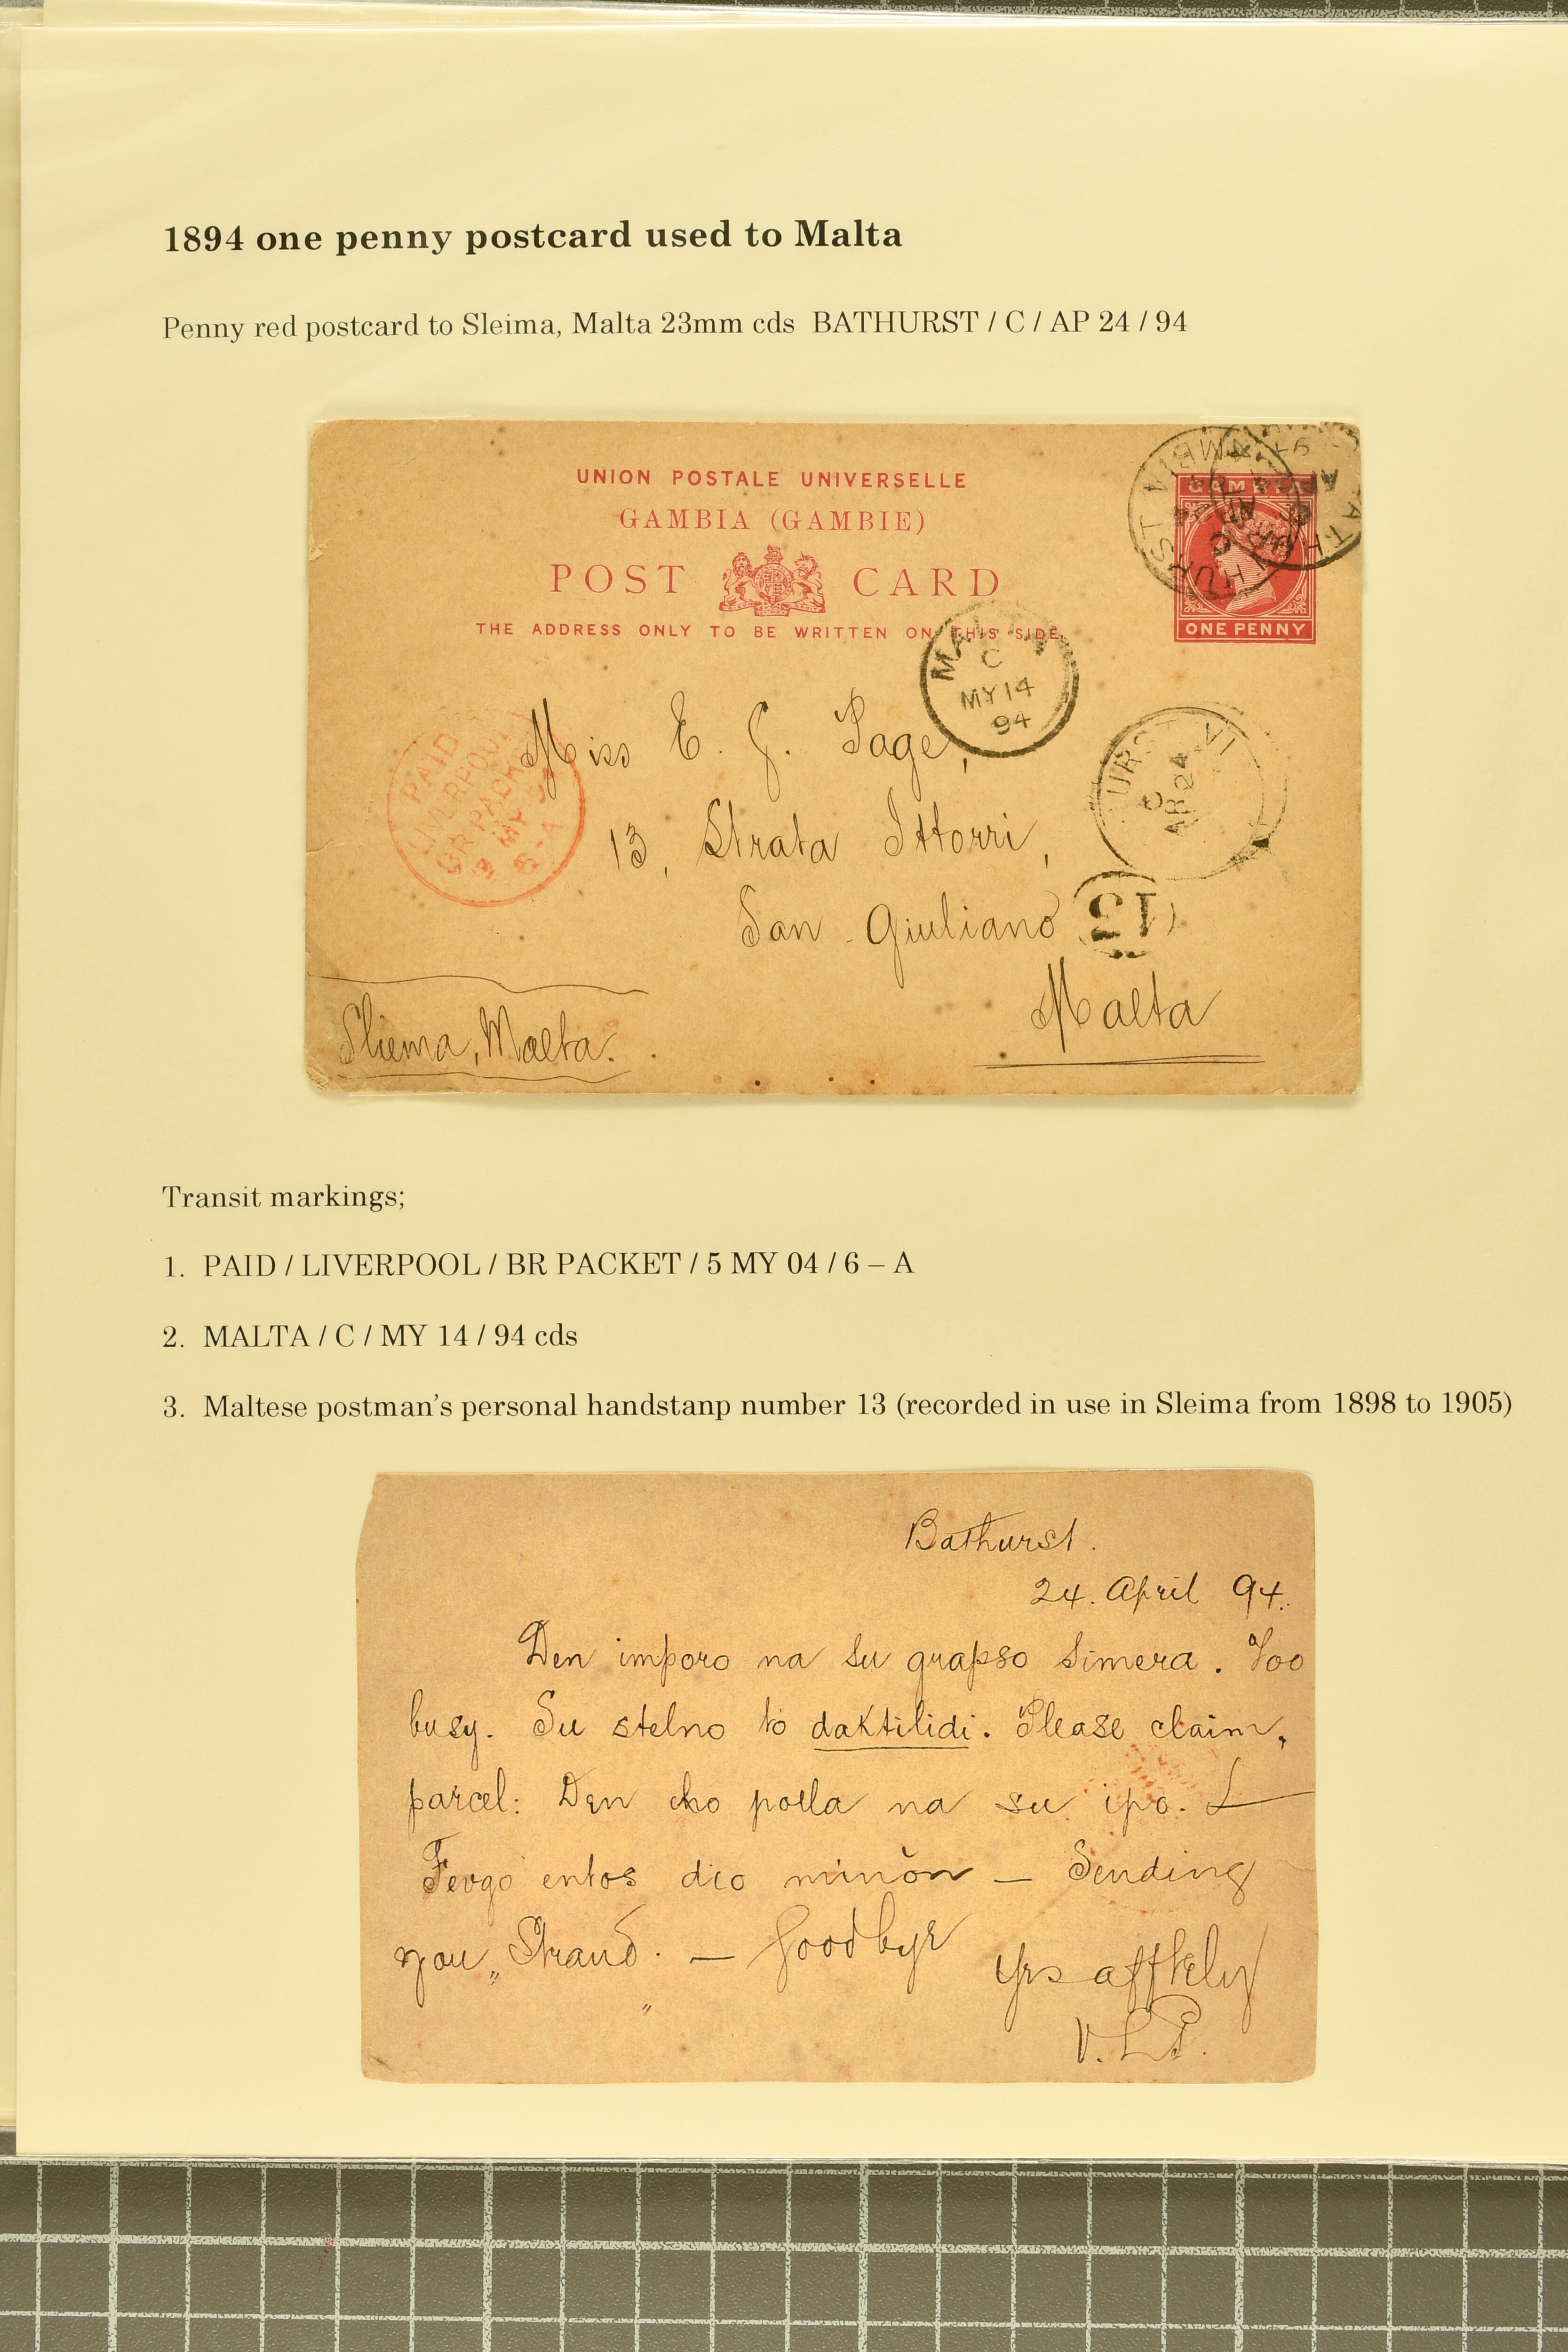 1894 one penny postcard used to Malta
Penny red postcard to Sleima, Malta 23mm cds BATHURST / C / AP 24 / 94
UNION POSTALE UNIVERSELLE
GAMBIA (GAMBIE)
POST CARD
THE ADDRESS ONLY TO BE WRITTEN ON THIS SIDE.
GAMBIA
ONE PENNY
MALTA
C
MY 14
94
PAID
LIVERPOOL
BR PACKET
MY
6-A
URST
C
AP 24
Miss E. G. Page,
13, Strata Ittorri,
San Giuliano
13
Malta
Sliema, Malta.
Transit markings;
1. PAID / LIVERPOOL / BR PACKET / 5 MY 04 / 6 – A
2. MALTA / C / MY 14 / 94 cds
3. Maltese postman's personal handstanp number 13 (recorded in use in Sleima from 1898 to 1905)
Bathurst.
24. April 94.
Den imporo na su grapso simera. Too
busy. Su stelno to daktilidi. Please claim,
parcel: Den eho polla na su ipo.
Fevgo entos dio minòn — Sending
you „Strand". — Goodbye
Yrs afftely
V. L. P.